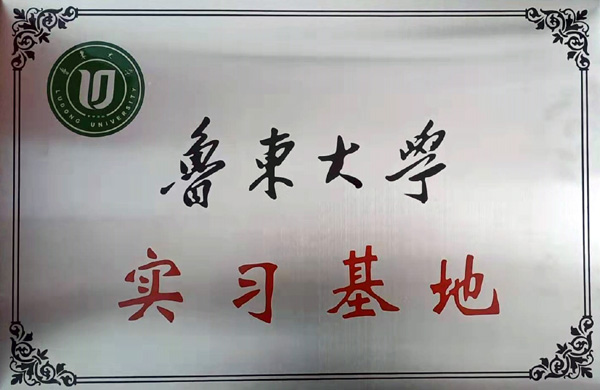 LUDONG UNIVERSITY
魯東大學
实习基地